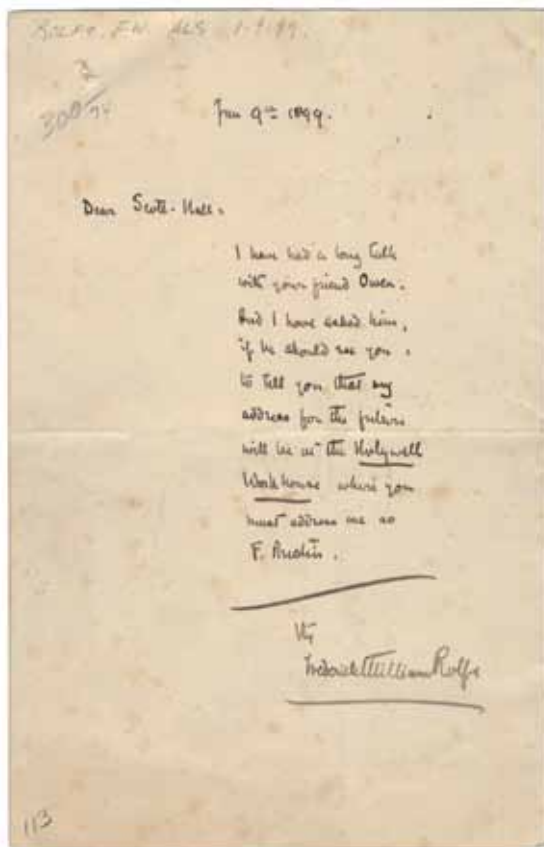 ROLFE, F.W. ALS 1-9-99.
Jan 9th 1899.
Dear Scott-Hall.
I have had a long talk
with your friend Owen.
And I have asked him,
if he should see you,
to tell you that my
address for the future
will be at the Holywell
Workhouse where you
must address me as
F. Austin.
Frederick William Rolfe
113